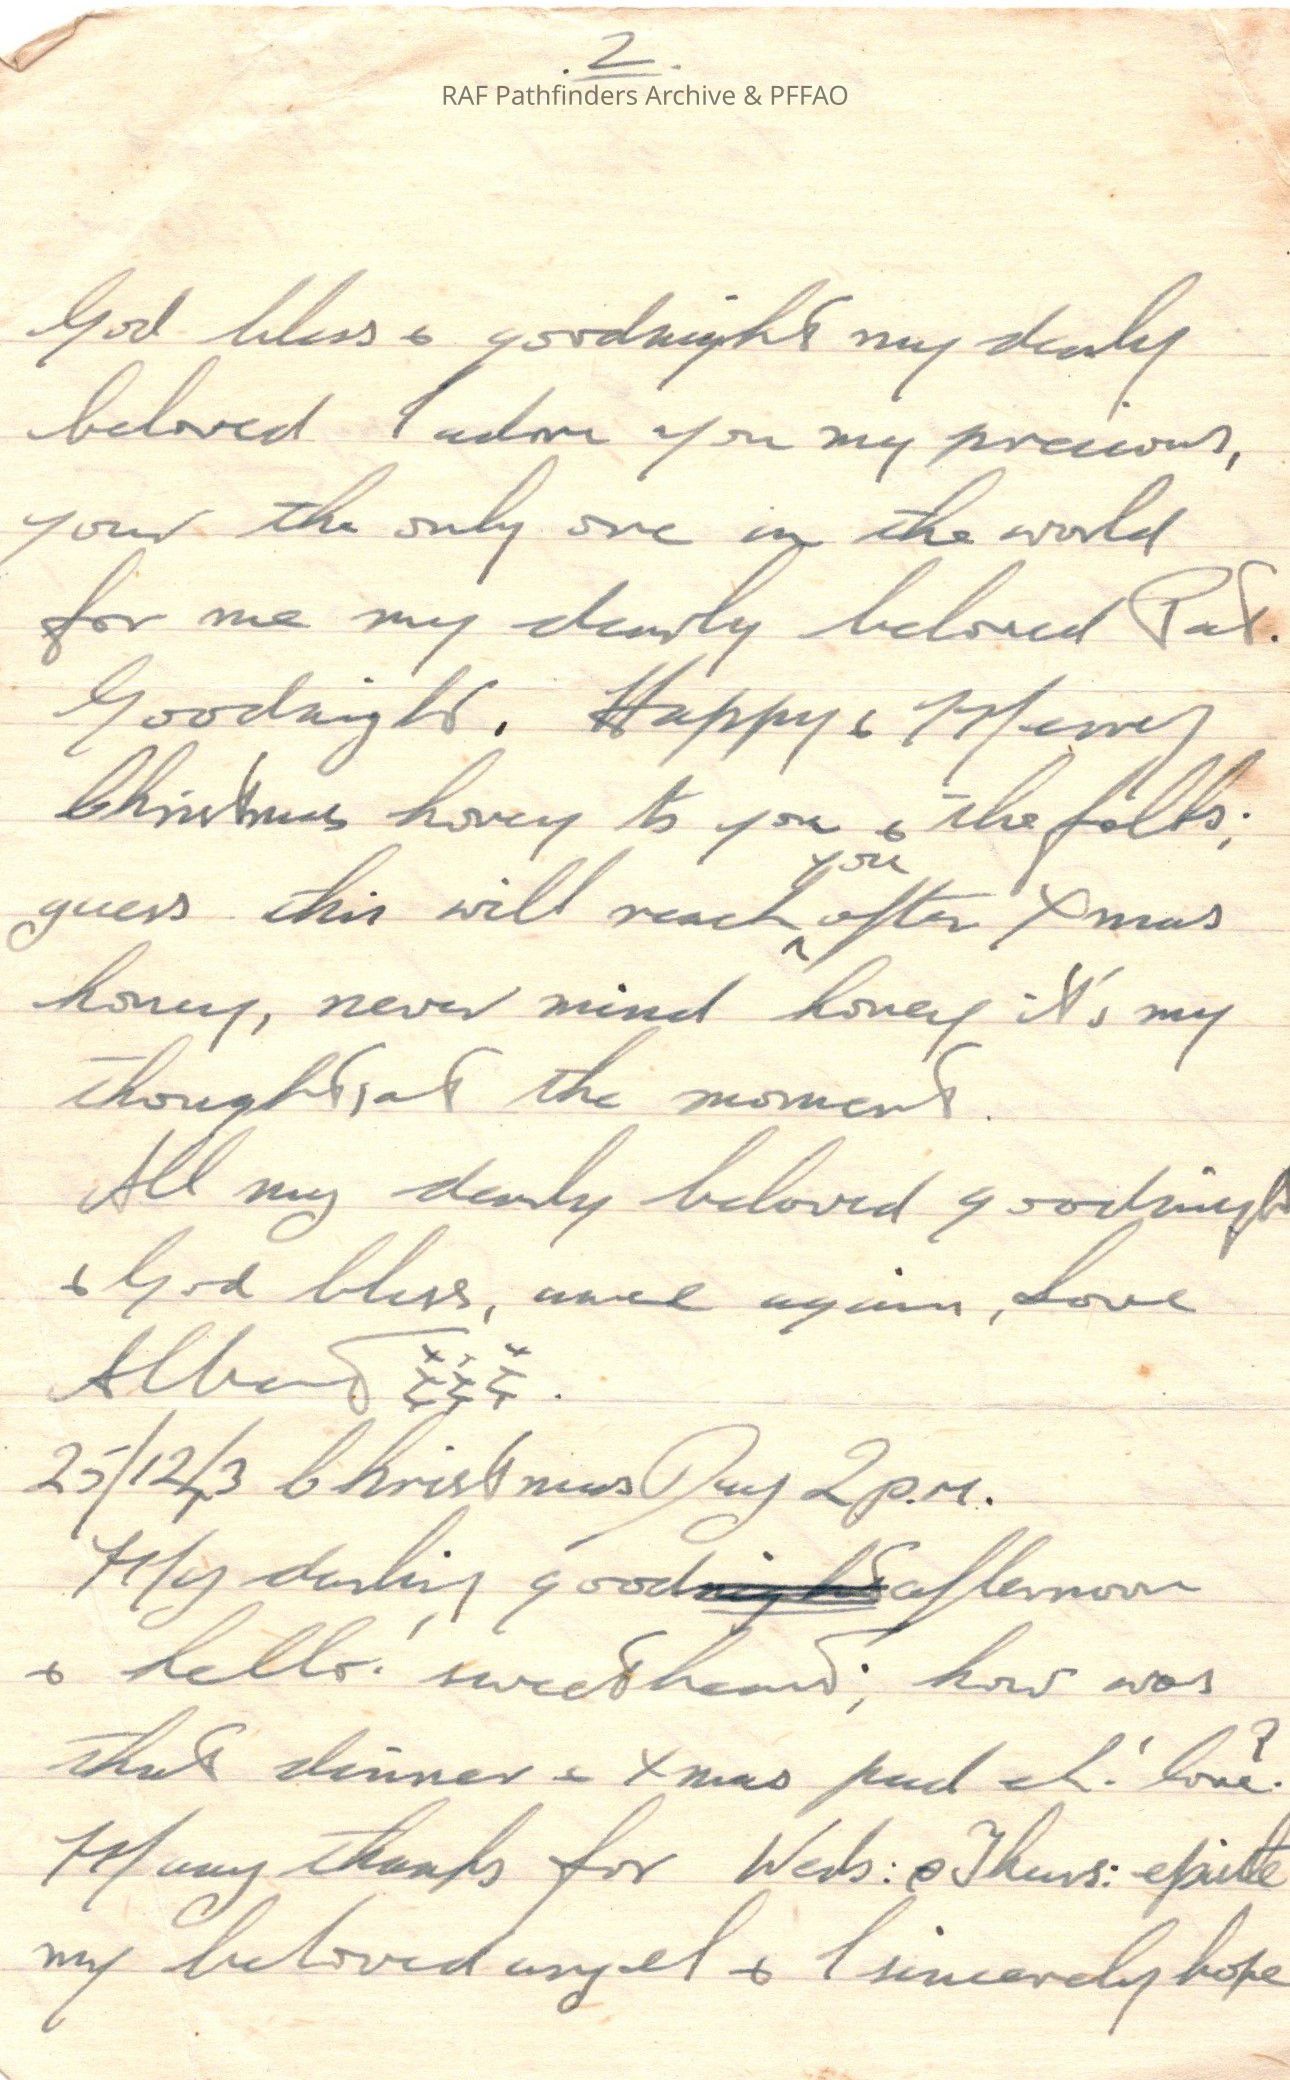 .2.
RAF Pathfinders Archive & PFFAO
God bless & goodnight my dearly
beloved I adore you my precious,
your the only one in the world
for me my dearly beloved Pat.
Goodnight. Happy & Merry
Christmas honey to you & the folks;
you
guess this will reach ^ after Xmas
honey, never mind honey it's my
thoughts, at the moment.
All my dearly beloved goodnight
& God bless, again, Love
Albert xxx
25/12/43 Christmas Day 2 p.m.
My darling goodnight afternoon
& hello! sweetheart; how was
that dinner & Xmas pud eh! love?
Many thanks for Weds: & Thurs: epistle
my beloved angel & I sincerely hope